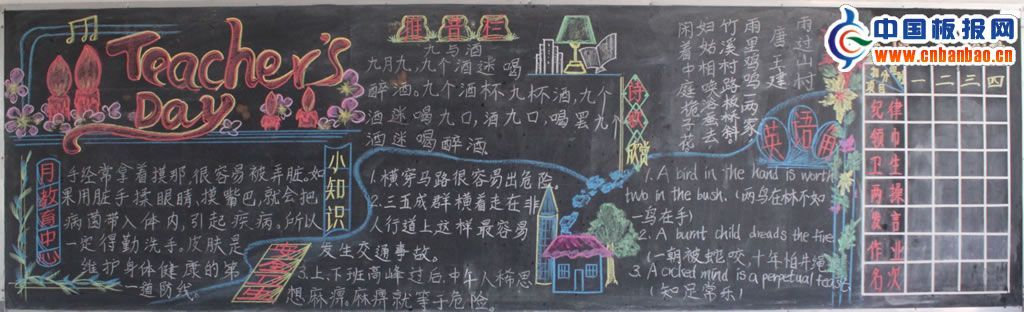 Teacher's
Day
月教育中心
手经常拿着摸那,很容易被弄脏。如
果用脏手揉眼睛,摸嘴巴,就会把
病菌带入体内,引起疾病。所以
一定得勤洗手。皮肤是
维护身体健康的第
一道防线。
小知识
拼音栏
九与酒
九月九,九个酒迷喝
醉酒。九个酒杯九杯酒,九个
酒迷喝九口,酒九口,喝罢九个
酒迷喝醉酒
1.横穿马路很容易出危险。
2.三五成群横着走在非
人行道上这样最容易
发生交通事故。
3.上、下班高峰过后,中午人稀思
想麻痹。麻痹就等于危险。
诗欣赏
雨过山村
唐 王建
雨里鸡鸣一两家
竹溪村路板桥斜
妇姑相唤浴蚕去
闲着中庭栀子花
英语角
1. A bird in the hand is worth
two in the bush. (两鸟在林不如
一鸟在手)
2. A burnt child dreads the fire
(一朝被蛇咬,十年怕井绳)
3. A mind is a perpetual feast
(知足常乐)
一 二 三 四
纪律
领巾
卫生
两操
发言
作业
名次
中国板报网
www.cnbanbao.cn